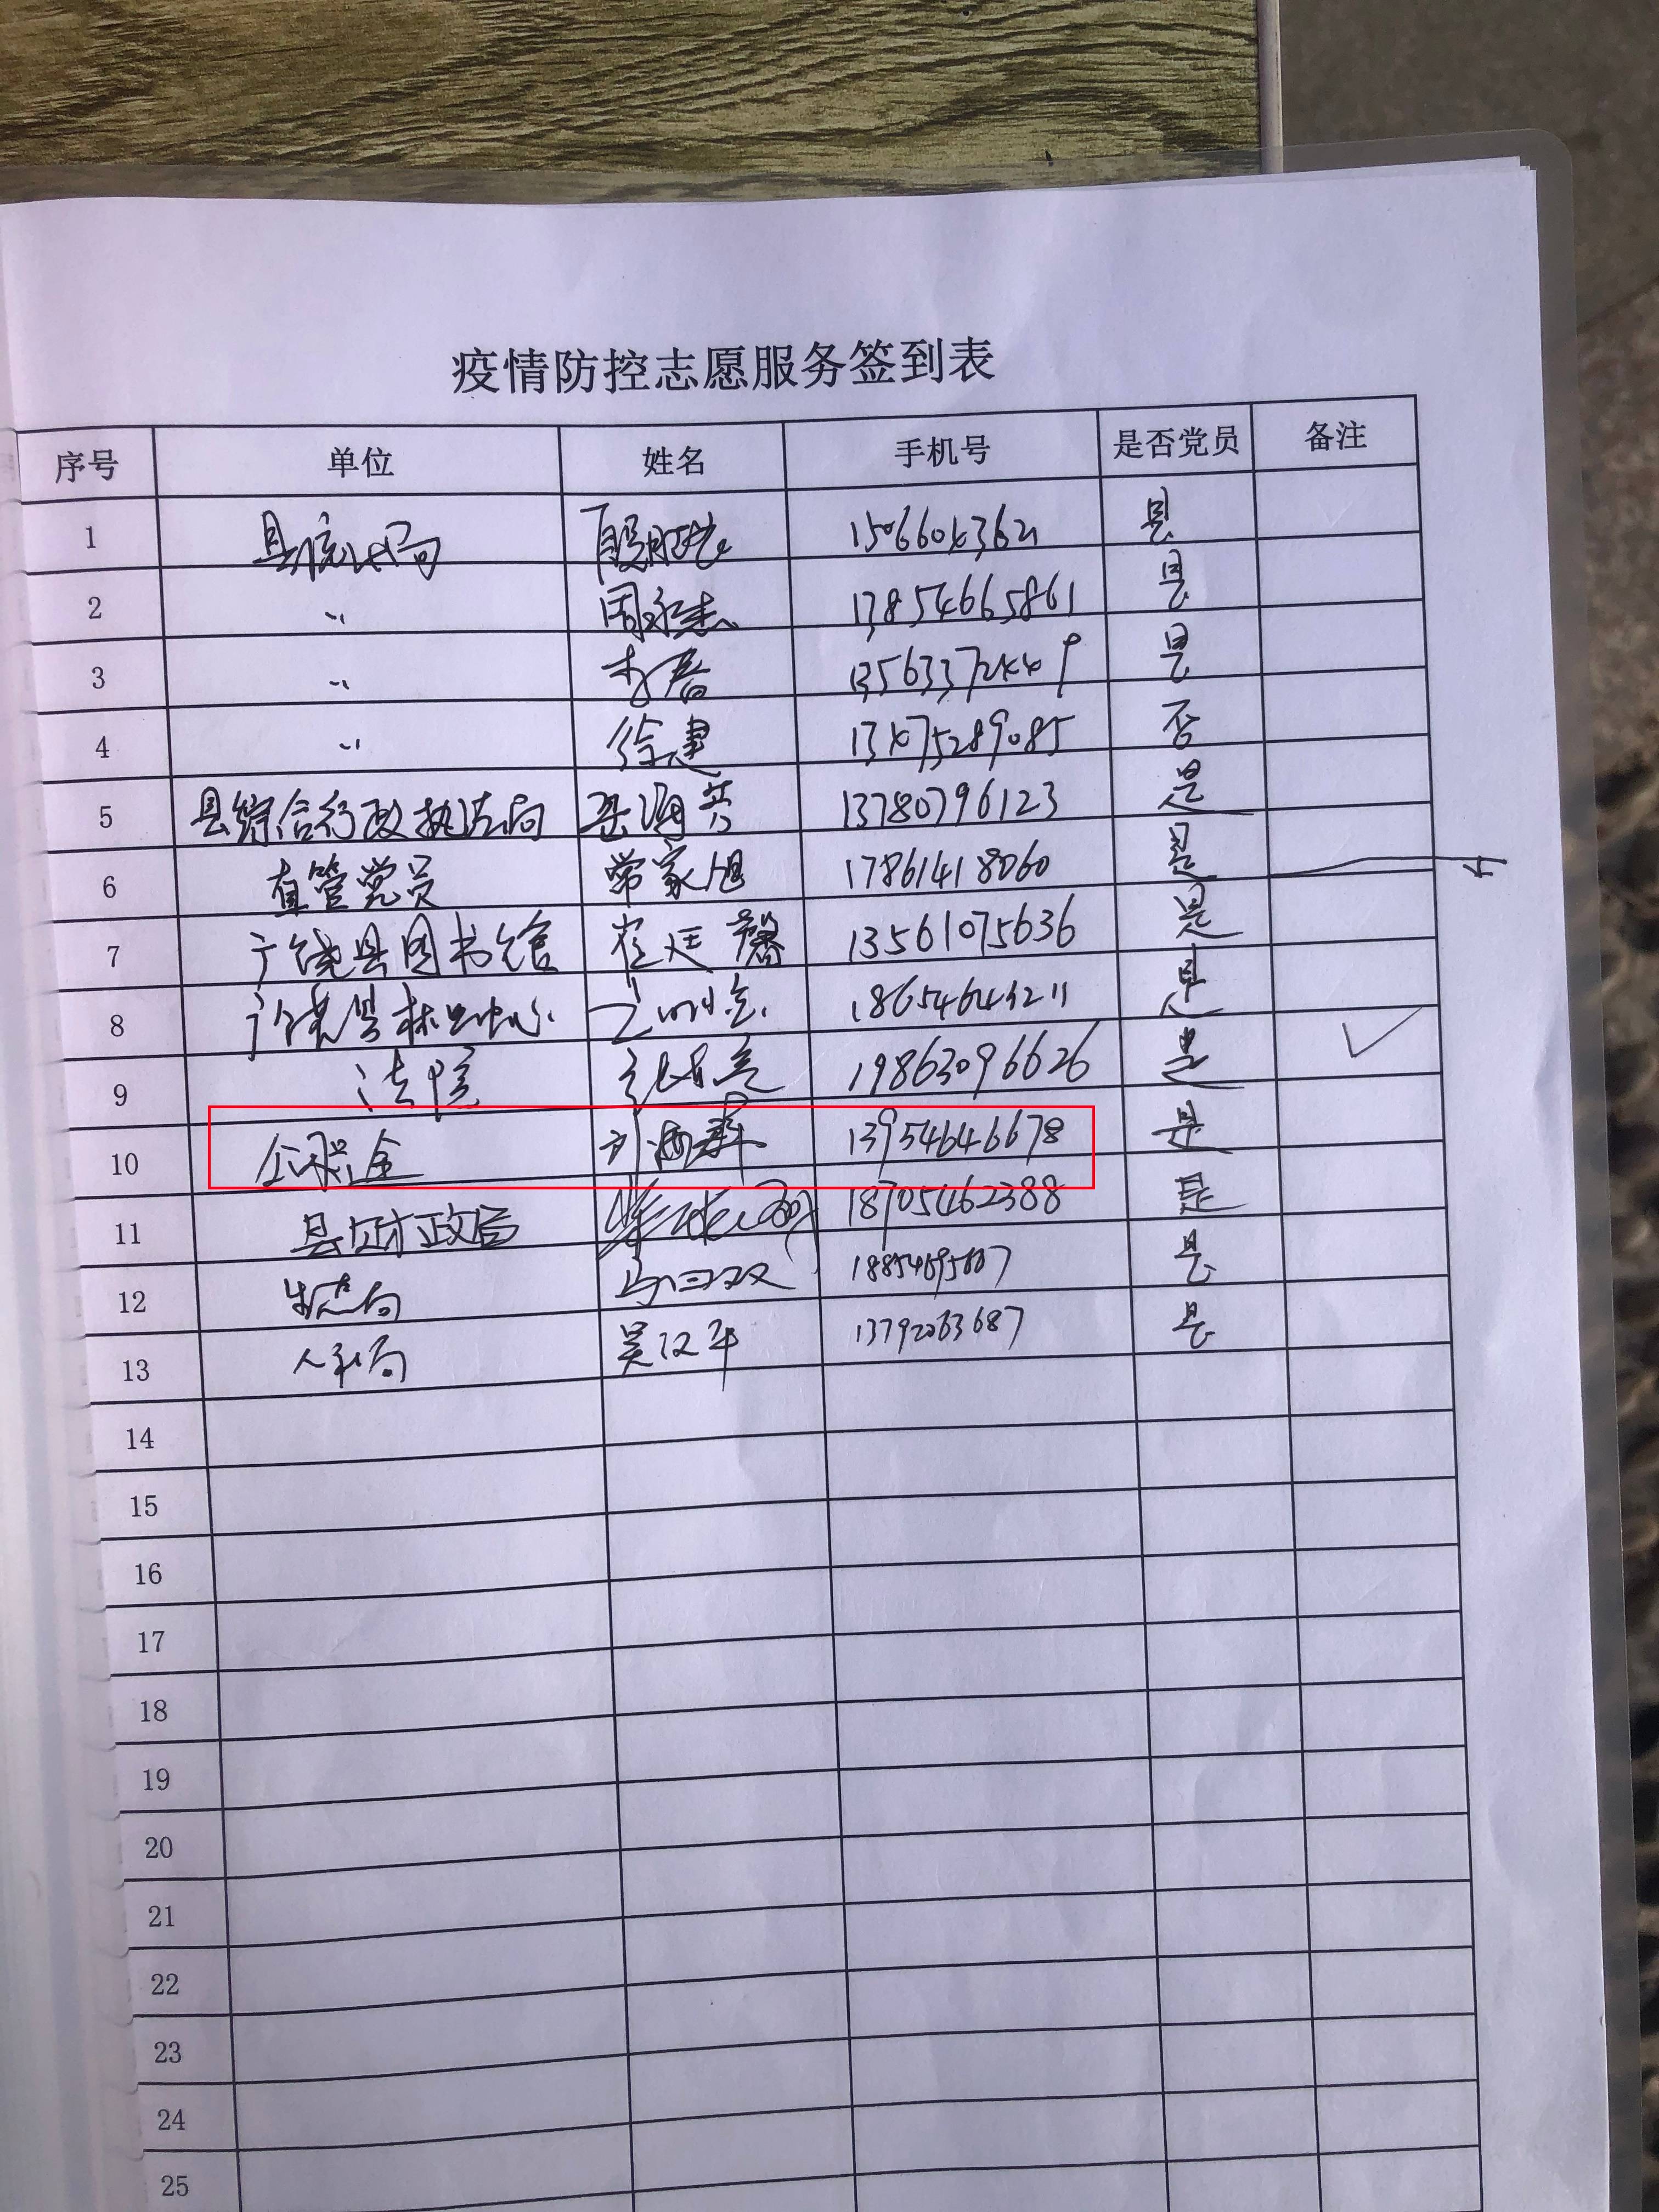 疫情防控志愿服务签到表
序号 单位 姓名 手机号 是否党员 备注
1 县统计局 15066043621 是
2 〃 周永志 13854665861 是
3 〃 13563372449 是
4 〃 徐建 13475289085 否
5 县综合行政执法局 13780796123 是
6 直管党员 常家旭 17861418060 是
7 广饶县图书馆 崔廷馨 13561075636 是
8 广饶县林业中心 18654643211 是
9 法院 19863096626 是 ✓
10 公积金 13954646678 是
11 县财政局 18705462388 是
12 生态局 是
13 吴汉平 13792063687 是
14
15
16
17
18
19
20
21
22
23
24
25